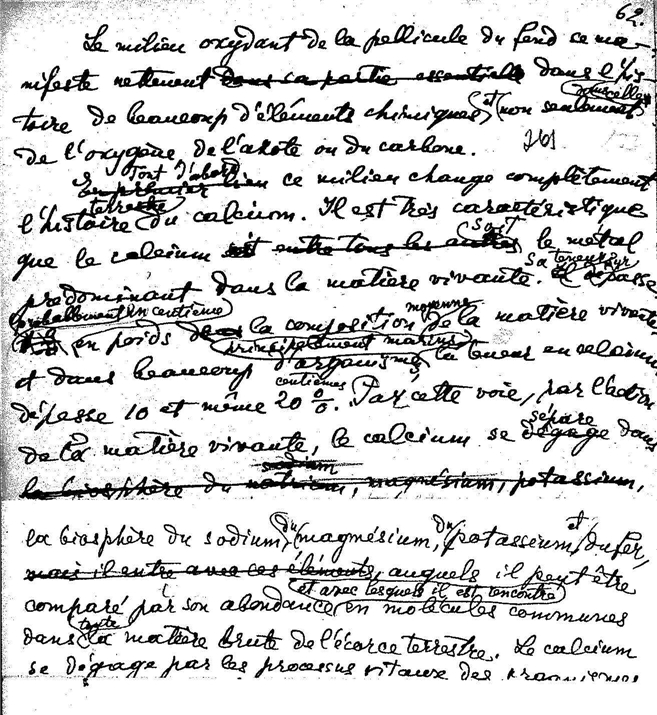 62.
Le milieu oxydant de la pellicule du fond se ma-
nifeste nettement dans sa partie essentielle dans l'his-
toire de beaucoup d'éléments chimiques, et non seulement
de l'oxygène, de l'azote ou du carbone.
Tout d'abord
En premier lieu ce milieu change complètement
terrestre
l'histoire du calcium. Il est très caractéristique
soit
que le calcium est entre tous les autres le métal
sa teneur y
prédominant dans la matière vivante. dépasse
probablement un centième moyenne
en poids dans la composition de la matière vivante,
principalement marins
et dans beaucoup d'organismes la teneur en calcium
centièmes
dépasse 10 et même 20 %. Par cette voie, par l'action
sépare
de la matière vivante, le calcium se dégage dans
sodium
la biosphère du natrium, magnésium, potassium,
la biosphère du sodium, du magnésium, du potassium et du fer,
mais il entre avec ces éléments, auquels il peut être
et avec lesquels il est rencontré
comparé par son abondance en molécules communes
toute
dans la matière brute de l'écorce terrestre. Le calcium
se dégage par les processus vitaux des organismes